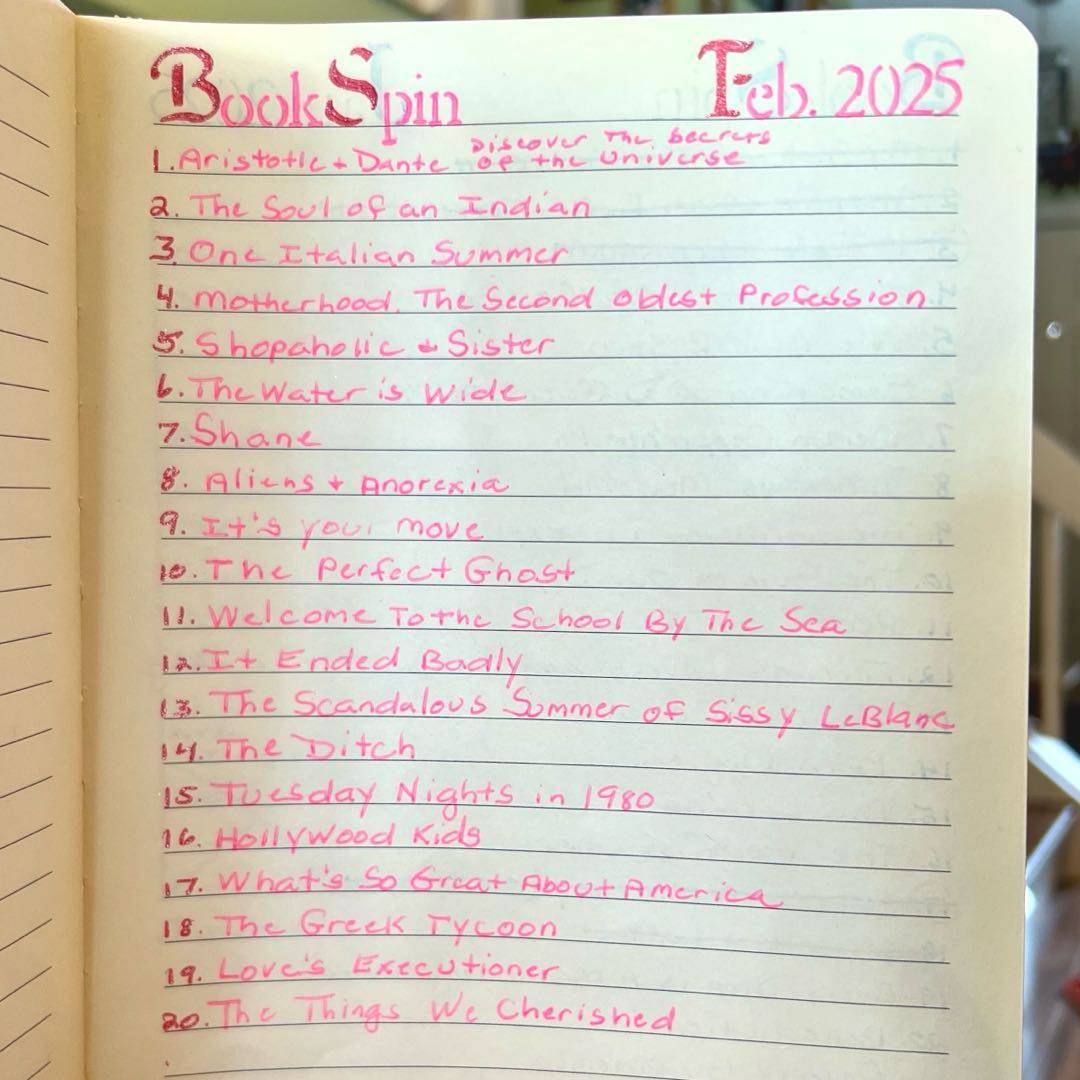 BookSpin Feb. 2025
Discover The Secrets
1. Aristotle + Dante of the Universe
2. The Soul of an Indian
3. One Italian Summer
4. Motherhood. The Second Oldest Profession
5. Shopaholic + Sister
6. The Water is Wide
7. Shane
8. Aliens + Anorexia
9. It's your move
10. The Perfect Ghost
11. Welcome To the School By The Sea
12. It Ended Badly
13. The Scandalous Summer of Sissy LeBlanc
14. The Ditch
15. Tuesday Nights in 1980
16. Hollywood Kids
17. What's So Great About America
18. The Greek Tycoon
19. Love's Executioner
20. The Things We Cherished